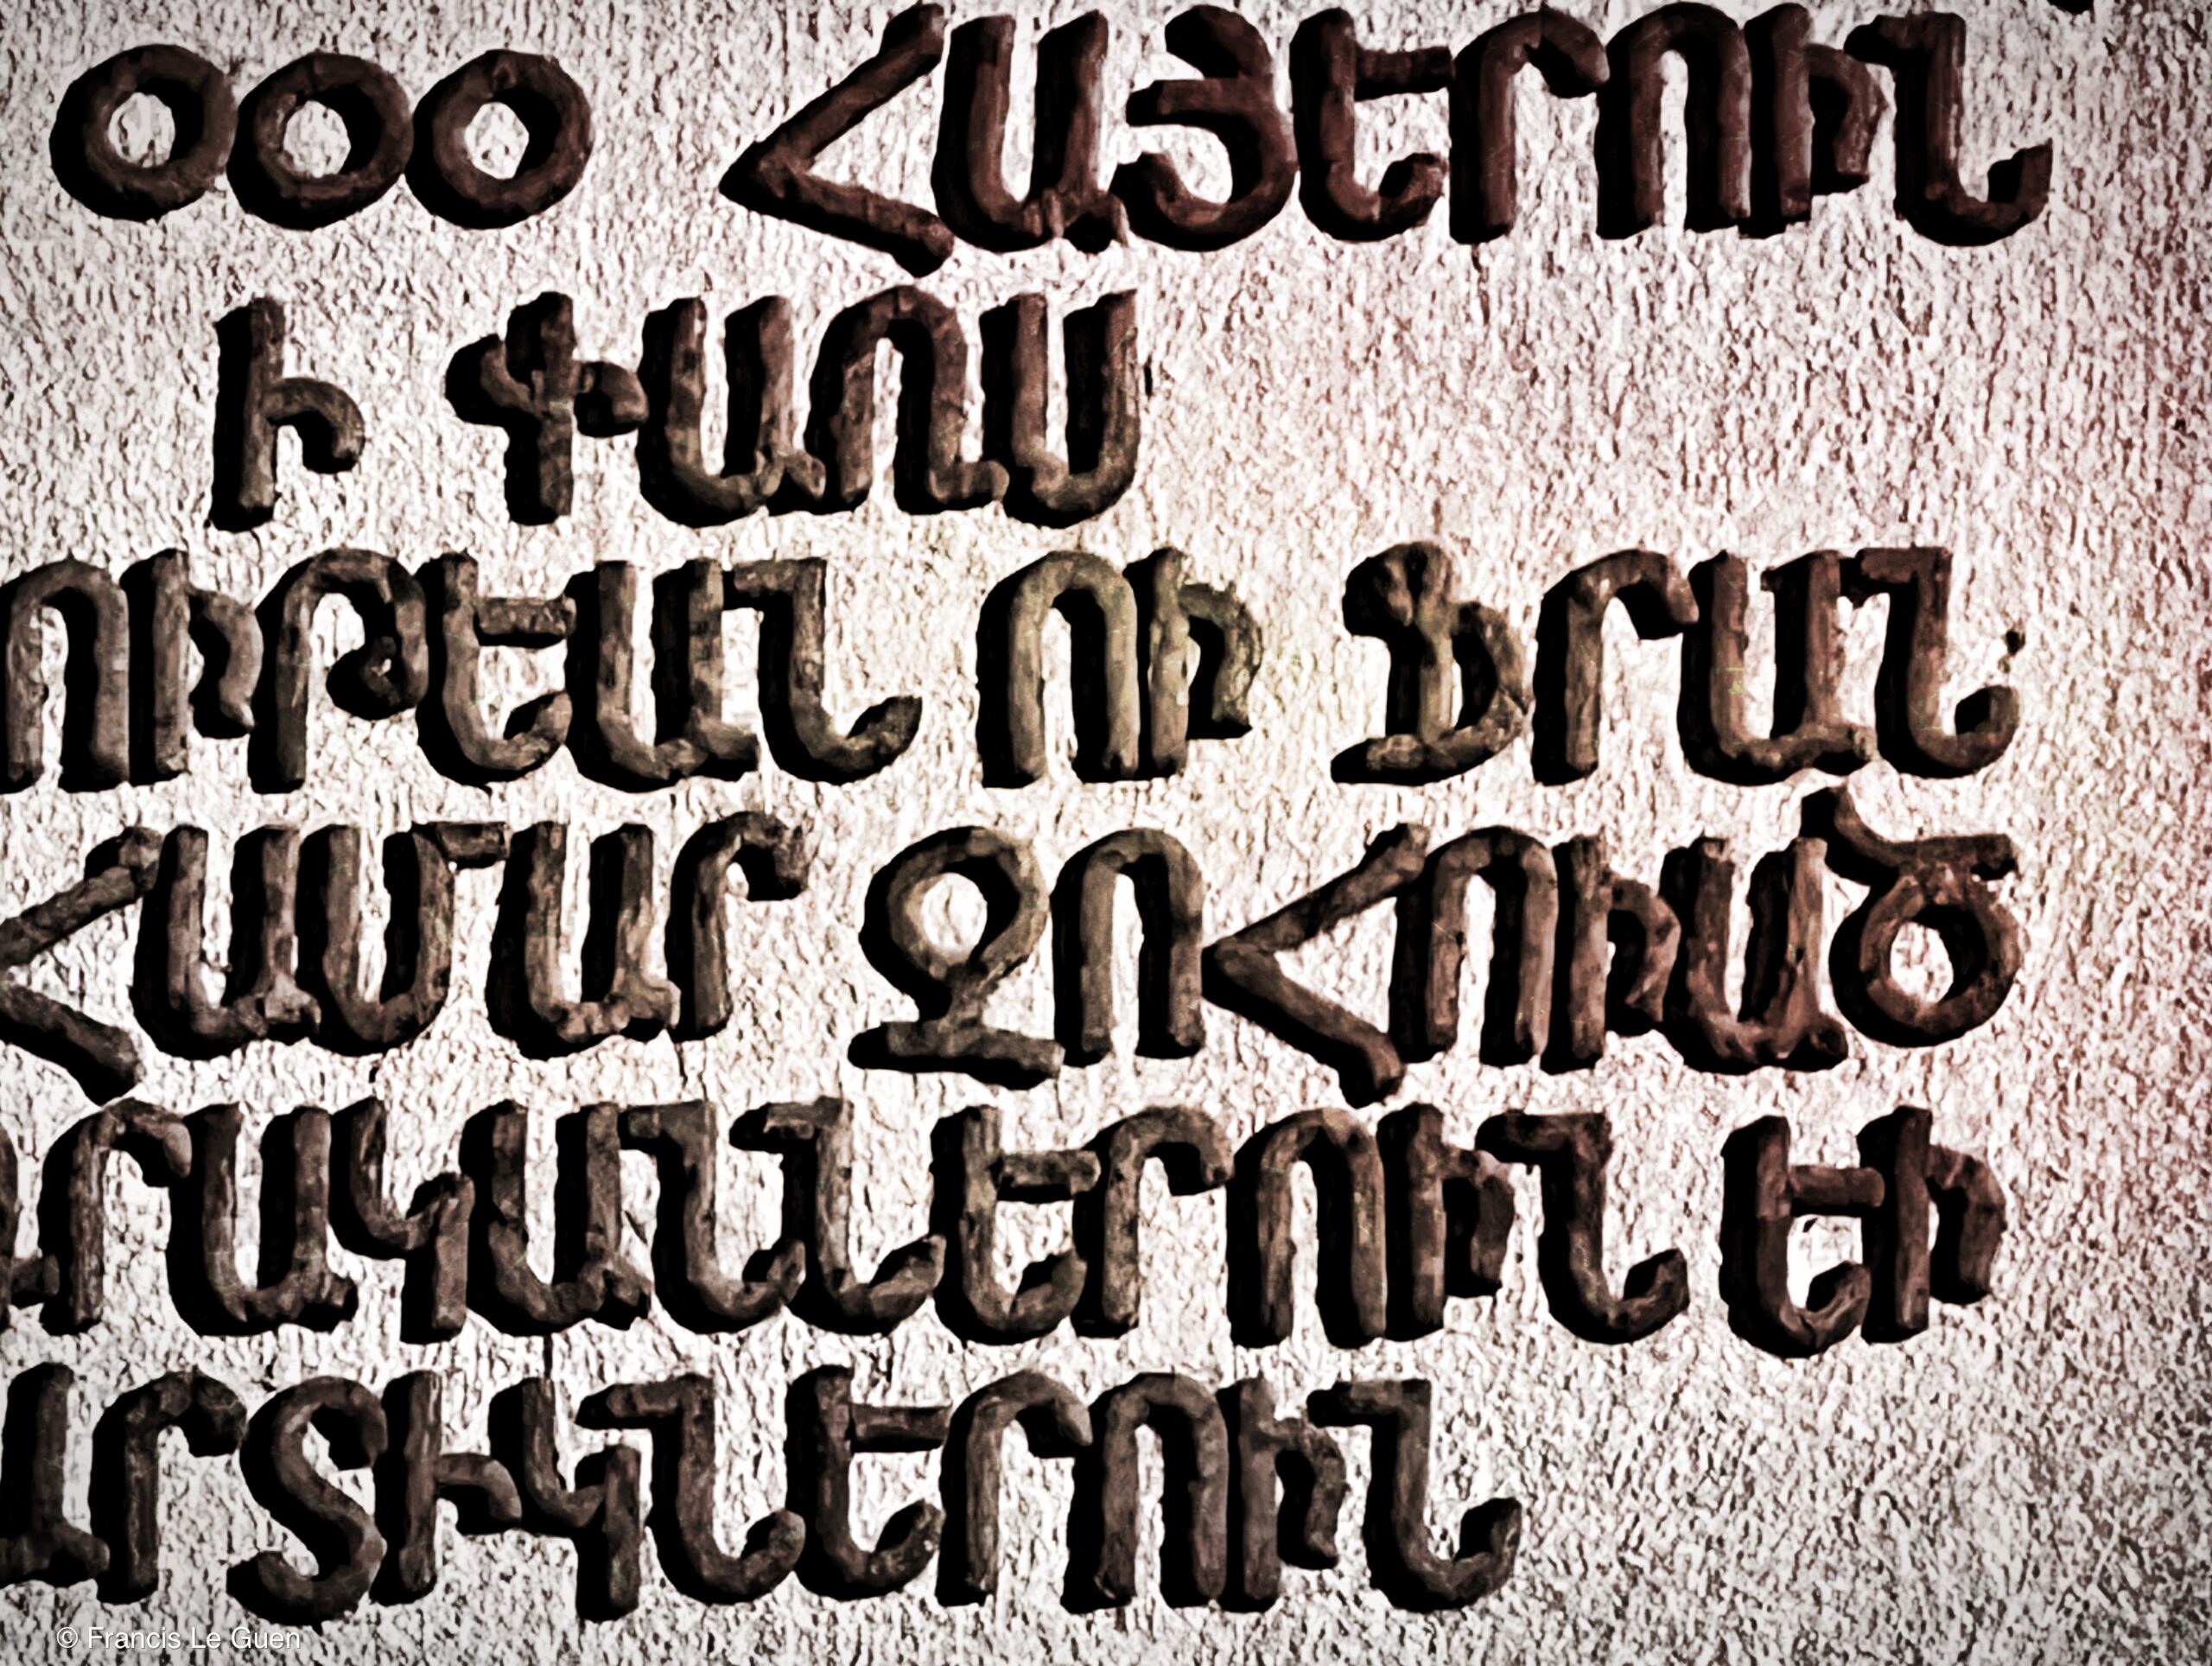 000 ՀԱՅԵՐՈՒՆ
Ի ՓԱՌՍ
ՈՒԹԵԱՆ ՈՒ ՖՐԱՆ
ՀԱՄԱՐ ԶՈՀՈՒԱԾ
ՐԱԿԱՆՆԵՐՈՒՆ ԵՒ
ԱՐՏԻԿՆԵՐՈՒՆ
© Francis Le Guen